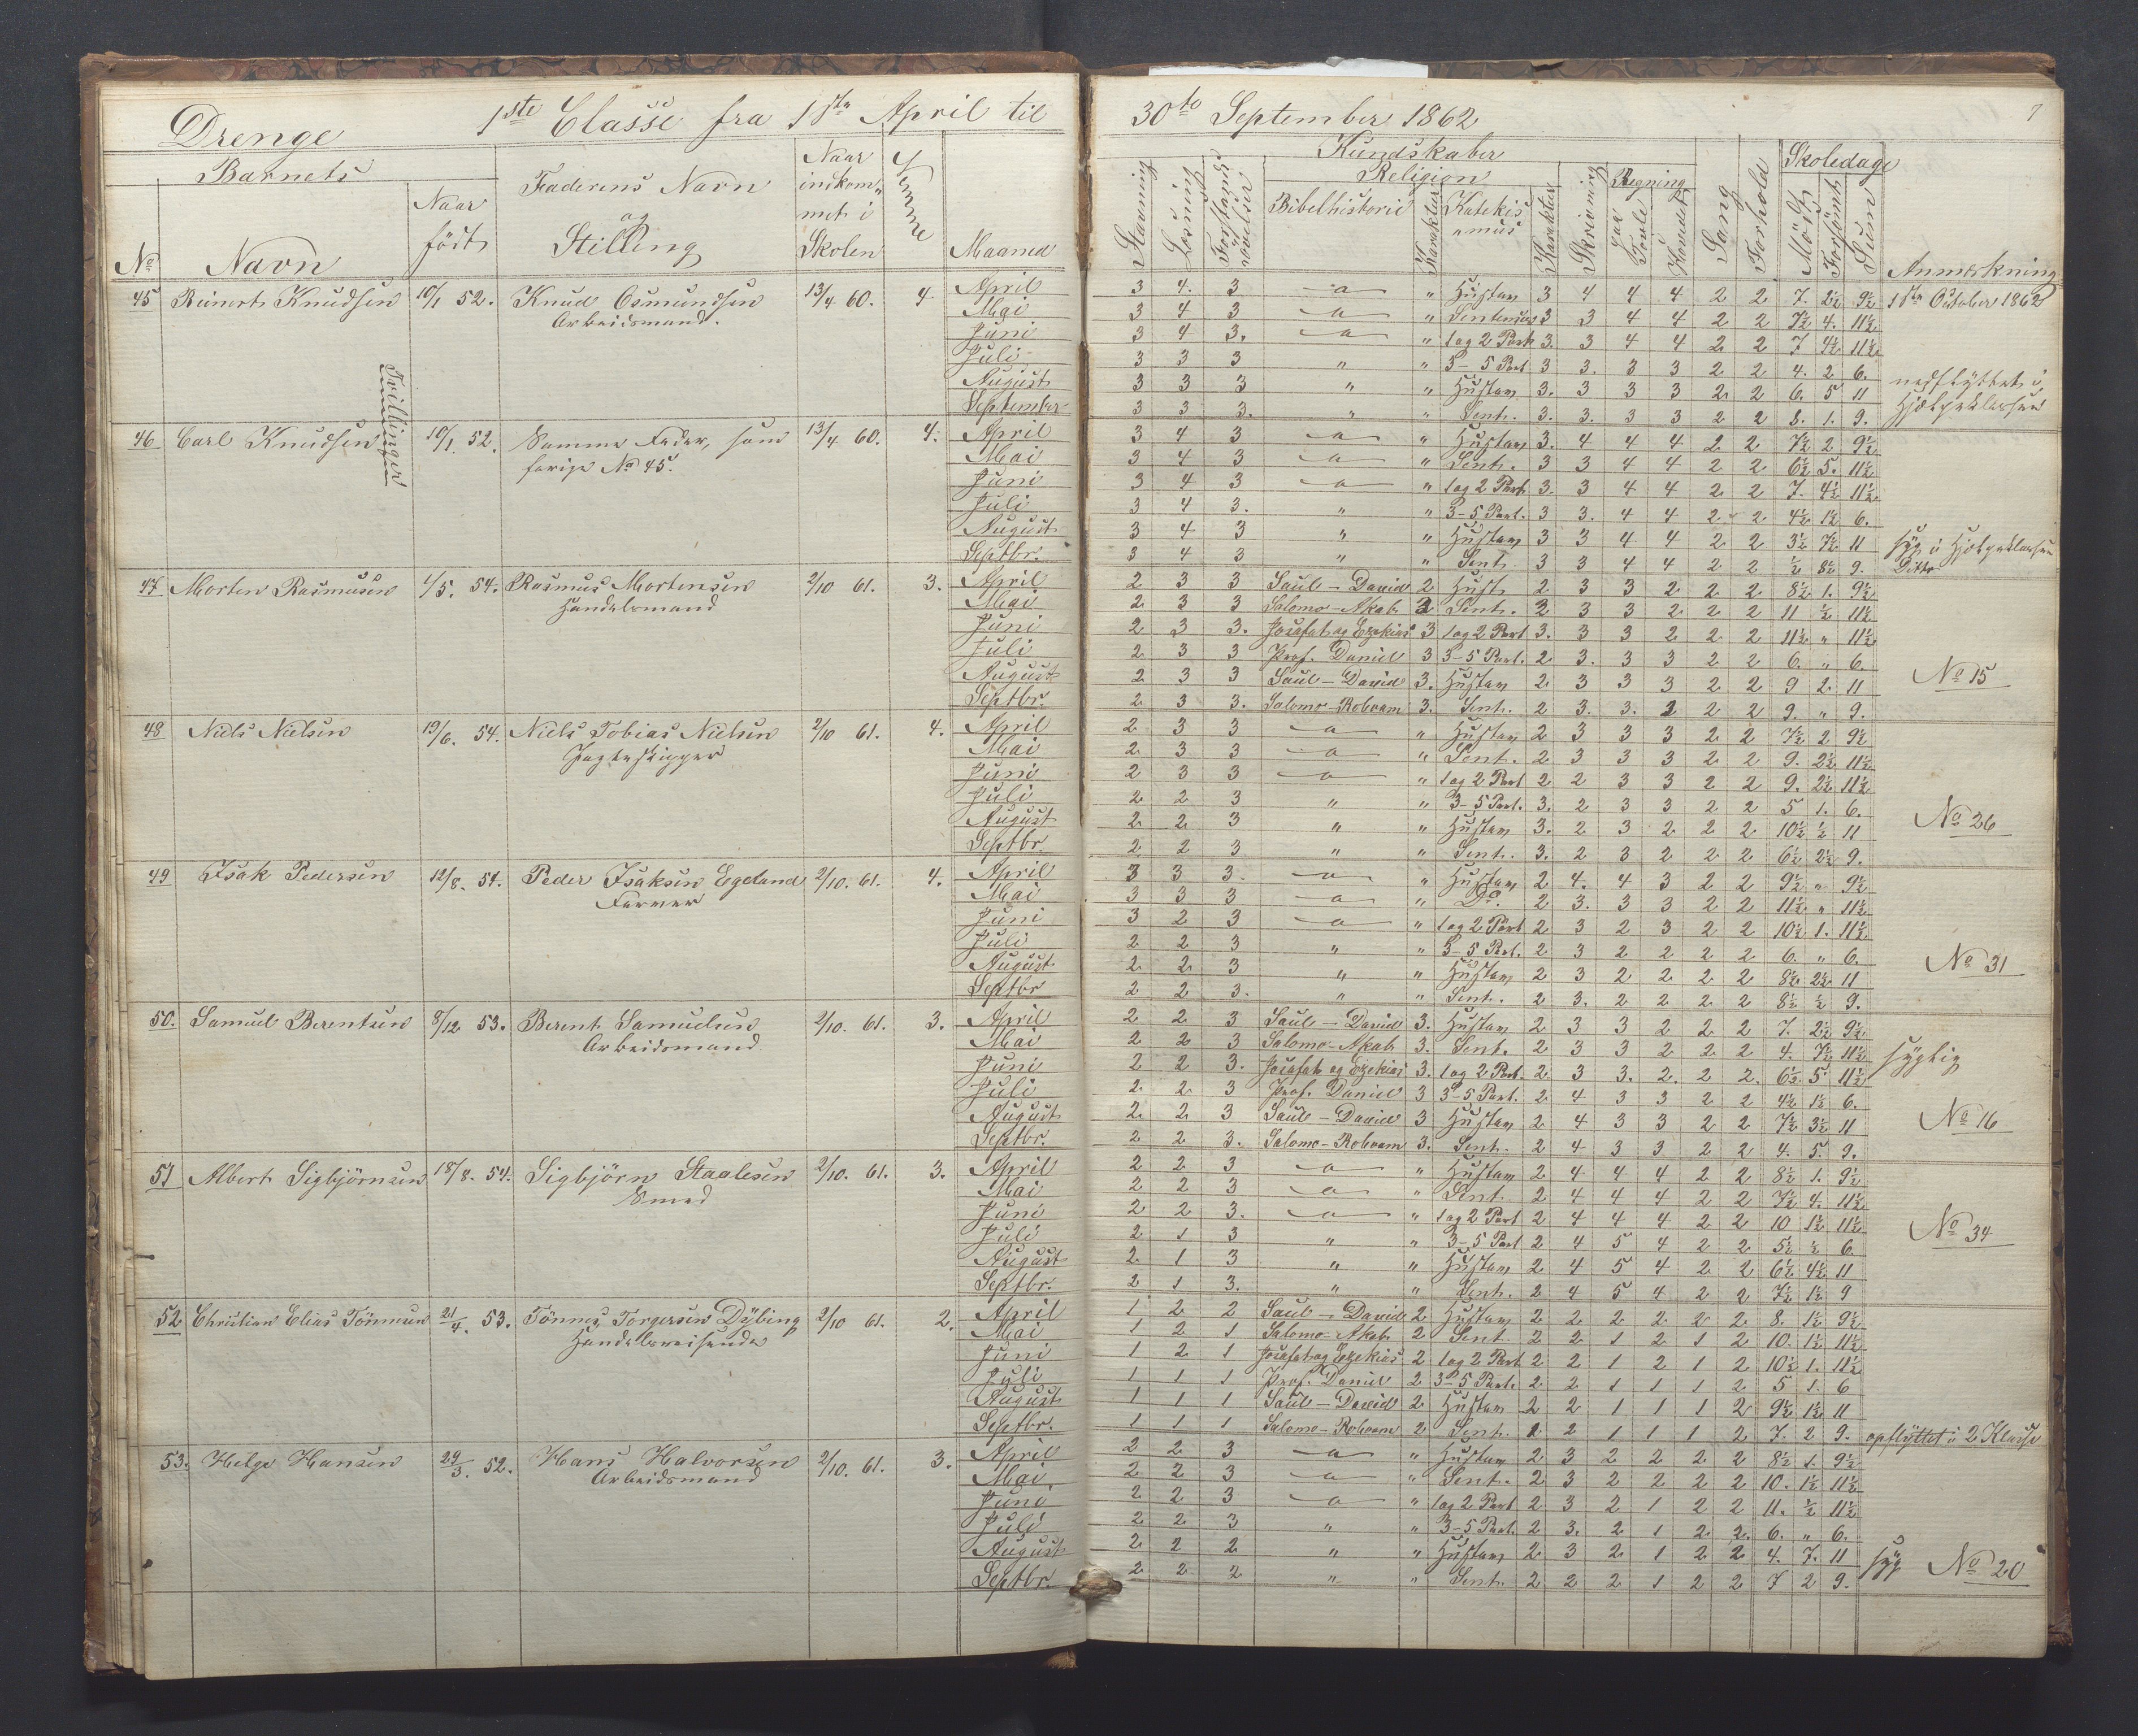 Drenge 1ste Classe fra 1ste April til 30te September 1862
7
Barnets
No
Navn
Naar født
Faderens Navn og Stilling
Naar indkommet i Skolen
Evne
Maaned
Kundskaber
Stavning
Læsning
Forstandsøvelser
Religion
Bibelhistorie
Karakter
Katekismus
Karakter
Skrivning
Regning
paa Tavle
i Hovedet
Sang
Forhold
Skoledage
Mødt
Forsømt
Sum
Anmærkning
45 Reinert Knudsen 10/1 52. Knud Osmundsen Arbeidsmand. 13/4 60. 4
Tvillinger
April 3 4. 3 a " Hustav 3 4 4 4 2 2 7. 2½ 9½ 1ste October 1862
Mai 3 4 3 a " Sentenser 3 3 4 4 2 2 7½ 4. 11½
Juni 3 4 3. a " 1 og 2 Part 3. 3 4 4 2 2 7 4½ 11½
Juli 3 3 3 " " 3-5 Part 3 3. 3 3 2 2 4. 2 6.
August 3 3 3 " " Hustav 3. 3 3 3 2 2 6. 5 11 nedflyttet i Hjælpeklassen
September 3 3 3. " " Sent. 3. 3. 3 3 2 2 8. 1. 9.
46 Carl Knudsen 10/1. 52. Samme Fader, som forige No 45. 13/4 60. 4.
April 3 4 3 a " Hustav 3. 4 4 4 2 2 7½ 2 9½
Mai 3 4 3 a " Sent. 3 3 4 4 2 2 6½ 5. 11½
Juni 3 4 3 a " 1 og 2 Part 3. 3 4 4 2 2 7. 4½ 11½
Juli 3 4 3. " " 3-5 Part. 3 3. 4 4 2 2 4½ 1½ 6.
August 3 4 3 " " Hustav 3 3 4 4 2 2 3½ 7½ 11 syg i Hjælpeklassen
Septbr. 3 4 3 " " Sent. 3 3 4 4 2 2 ½ 8½ 9. Ditto
47 Morten Rasmusen 1/5. 54. Rasmus Mortensen Handelsmand 2/10 61. 3.
April 2 3 3 Saul - David 2 Hust. 2 3 3 2 2 2 8½ 1. 9½
Mai 2 3 3 Salomo - Akab 3 Sent. 3 3 3 2 2 2 11 ½ 11½
Juni 2 3 3. Josafat og Ezekias 3 1 og 2 Part 3. 3 3 2 2 2 11½ " 11½
Juli 2 3 3 Prof. Daniel 3 3-5 Part. 2 3. 3 3 2 2 6. " 6.
August 2 3 3 Saul - David 3. Hustav 2 3 3 3 2 2 9 2 11 No 15
Septbr. 2 3 3. Salomo - Roboam 3. Sent. 2 3. 3. 2 2 2 9. " 9.
48 Niels Nielsen 19/6. 54. Niels Tobias Nielsen Jagteskipper 2/10 61. 4.
April 2 3 3 a " Hustav 2 3 3 3 2 2 7½ 2 9½
Mai 2 3 3 a " Sent. 2 3 3 3 2 2 9. 2½ 11½
Juni 2 3 3 a " 1 og 2 Part 2 2 3 3 2 2 9. 2½ 11½
Juli 2 2 3 " " 3-5 Part. 3. 2 3 3 2 2 5 1. 6.
August 2 2 3 " " Hustav 3. 2 3 2 2 2 10½ ½ 11 No 26
Septbr. 2 2 3 " " Sent. 3. 2 3 2 2 2 6½ 2½ 9.
49 Isak Pedersen 12/8. 54. Peder Isaksen Egeland Farver 2/10. 61. 4.
April 3 3 3. a " Hustav 2 4. 4 3 2 2 9½ " 9½
Mai 3 3 3 a " Do. 2 3. 3 3 2 2 11½ " 11½
Juni 3 2 3 a " 1 og 2 Part 2 3 2 3 2 2 10½ 1. 11½
Juli 2 2 3 " " 3-5 Part. 2 3 2 2 2 2 6. " 6.
August 2 2 3 " " Hustav 2 3 2 2 2 2 8½ 2½ 11 No 31
Septbr 2 2 3. " " Sent. 2 3. 2 2 2 2 8½ ½ 9.
50. Samuel Berentsen 8/12 53. Berent Samuelsen Arbeidsmand 2/10. 61. 3.
April 2 2 3 Saul - David 3. Hustav 2 3 3 2 2 2 7. 2½ 9½
Mai 2 2 3 Salomo - Akab 3. Sent. 2 3 3 2 2 2 4. 7½ 11½ sygelig
Juni 2 2 3. Josafat og Ezekias 3. 1 og 2 Part. 2 3 3. 2. 2 2. 6½ 5 11½
Juli 2 2 3 Prof. Daniel 3 3-5 Part. 2 4 3 3 2 2 4½ 1½ 6.
August 2 2 3 Saul - David 3 Hustav 2 4 3 3 2 2 7½ 3½ 11 No 16
Septbr. 2 2 3. Salomo - Roboam 3. Sent. 2 4 3 3 2 2 4. 5. 9.
51 Albert Sigbjørnsen 18/8. 54. Sigbjørn Staalesen Smed 2/10. 61. 3.
April 2 2 3 a " Hustav 2 4 4 4 2 2 8½ 1. 9½
Mai 2 2 3 a " Sent. 2 4 4 4 2 2 7½ 4. 11½
Juni 2 2 3. a " 1 og 2 Part 2 4 4 4 2 2 10 1½ 11½
Juli 2 1 3 " " 3-5 Part 2 4 5 4 2 2 5½ ½ 6. No 34
August 2 1 3 " " Hustav 2 4 5 4 2 2 6½ 4½ 11
Septbr. 2 1 3. " " Sent. 2 4 5 4 2 2 7½ 1½ 9
52 Christian Elias Tønnesen 21/4. 53. Tønnes Torgersen Dybing Handelsreisende 2/10 61. 2.
April 1 2 2 Saul - David 2 Hustav 2 2 2 2 2 2 8. 1½ 9½
Mai 1 2 1 Salomo - Akab 2 Sent. 2 2 1 2 1 2 10. 1½ 11½
Juni 1 2 1 Josafat og Ezekias 2 1 og 2 Part 2 2 1 2 1 2 10½ 1. 11½
Juli 1 1 1 Prof. Daniel 2 3-5 Part. 2 2 1 1 1 2 5 1. 6
August 1 1 1 Saul - David 2 Hustav 2 2 1 1 1 2 9½ 1½ 11
Septbr. 1 1 1 Salomo - Roboam 2 Sent. 2 2 1 1 1 2 7. 2 9. opflyttet i 2 Klasse
53. Helge Hansen 29/3. 52. Hans Halvorsen Arbeidsmand 2/10. 61. 3.
April 2 2 3 a " Hustav 2 3 2 2 2 2 8½ 1. 9½
Mai 2 2 3 a " Sent. 2 3 2 2 2 2 10. 1½ 11½
Juni 2 2 3 a " 1 og 2 Part 2 3 2 1 2 2 11. ½ 11½
Juli 2 2 3 " " 3-5 Part. 2 3. 2 1 2 2. 6. " 6.
August 2 2 2 " " Hustav 2 3 2 1 2 2 4. 7. 11 syg No 20
Septbr. 2 2 2 " " Sent. 2 2 2 1 2 2 7 2 9.